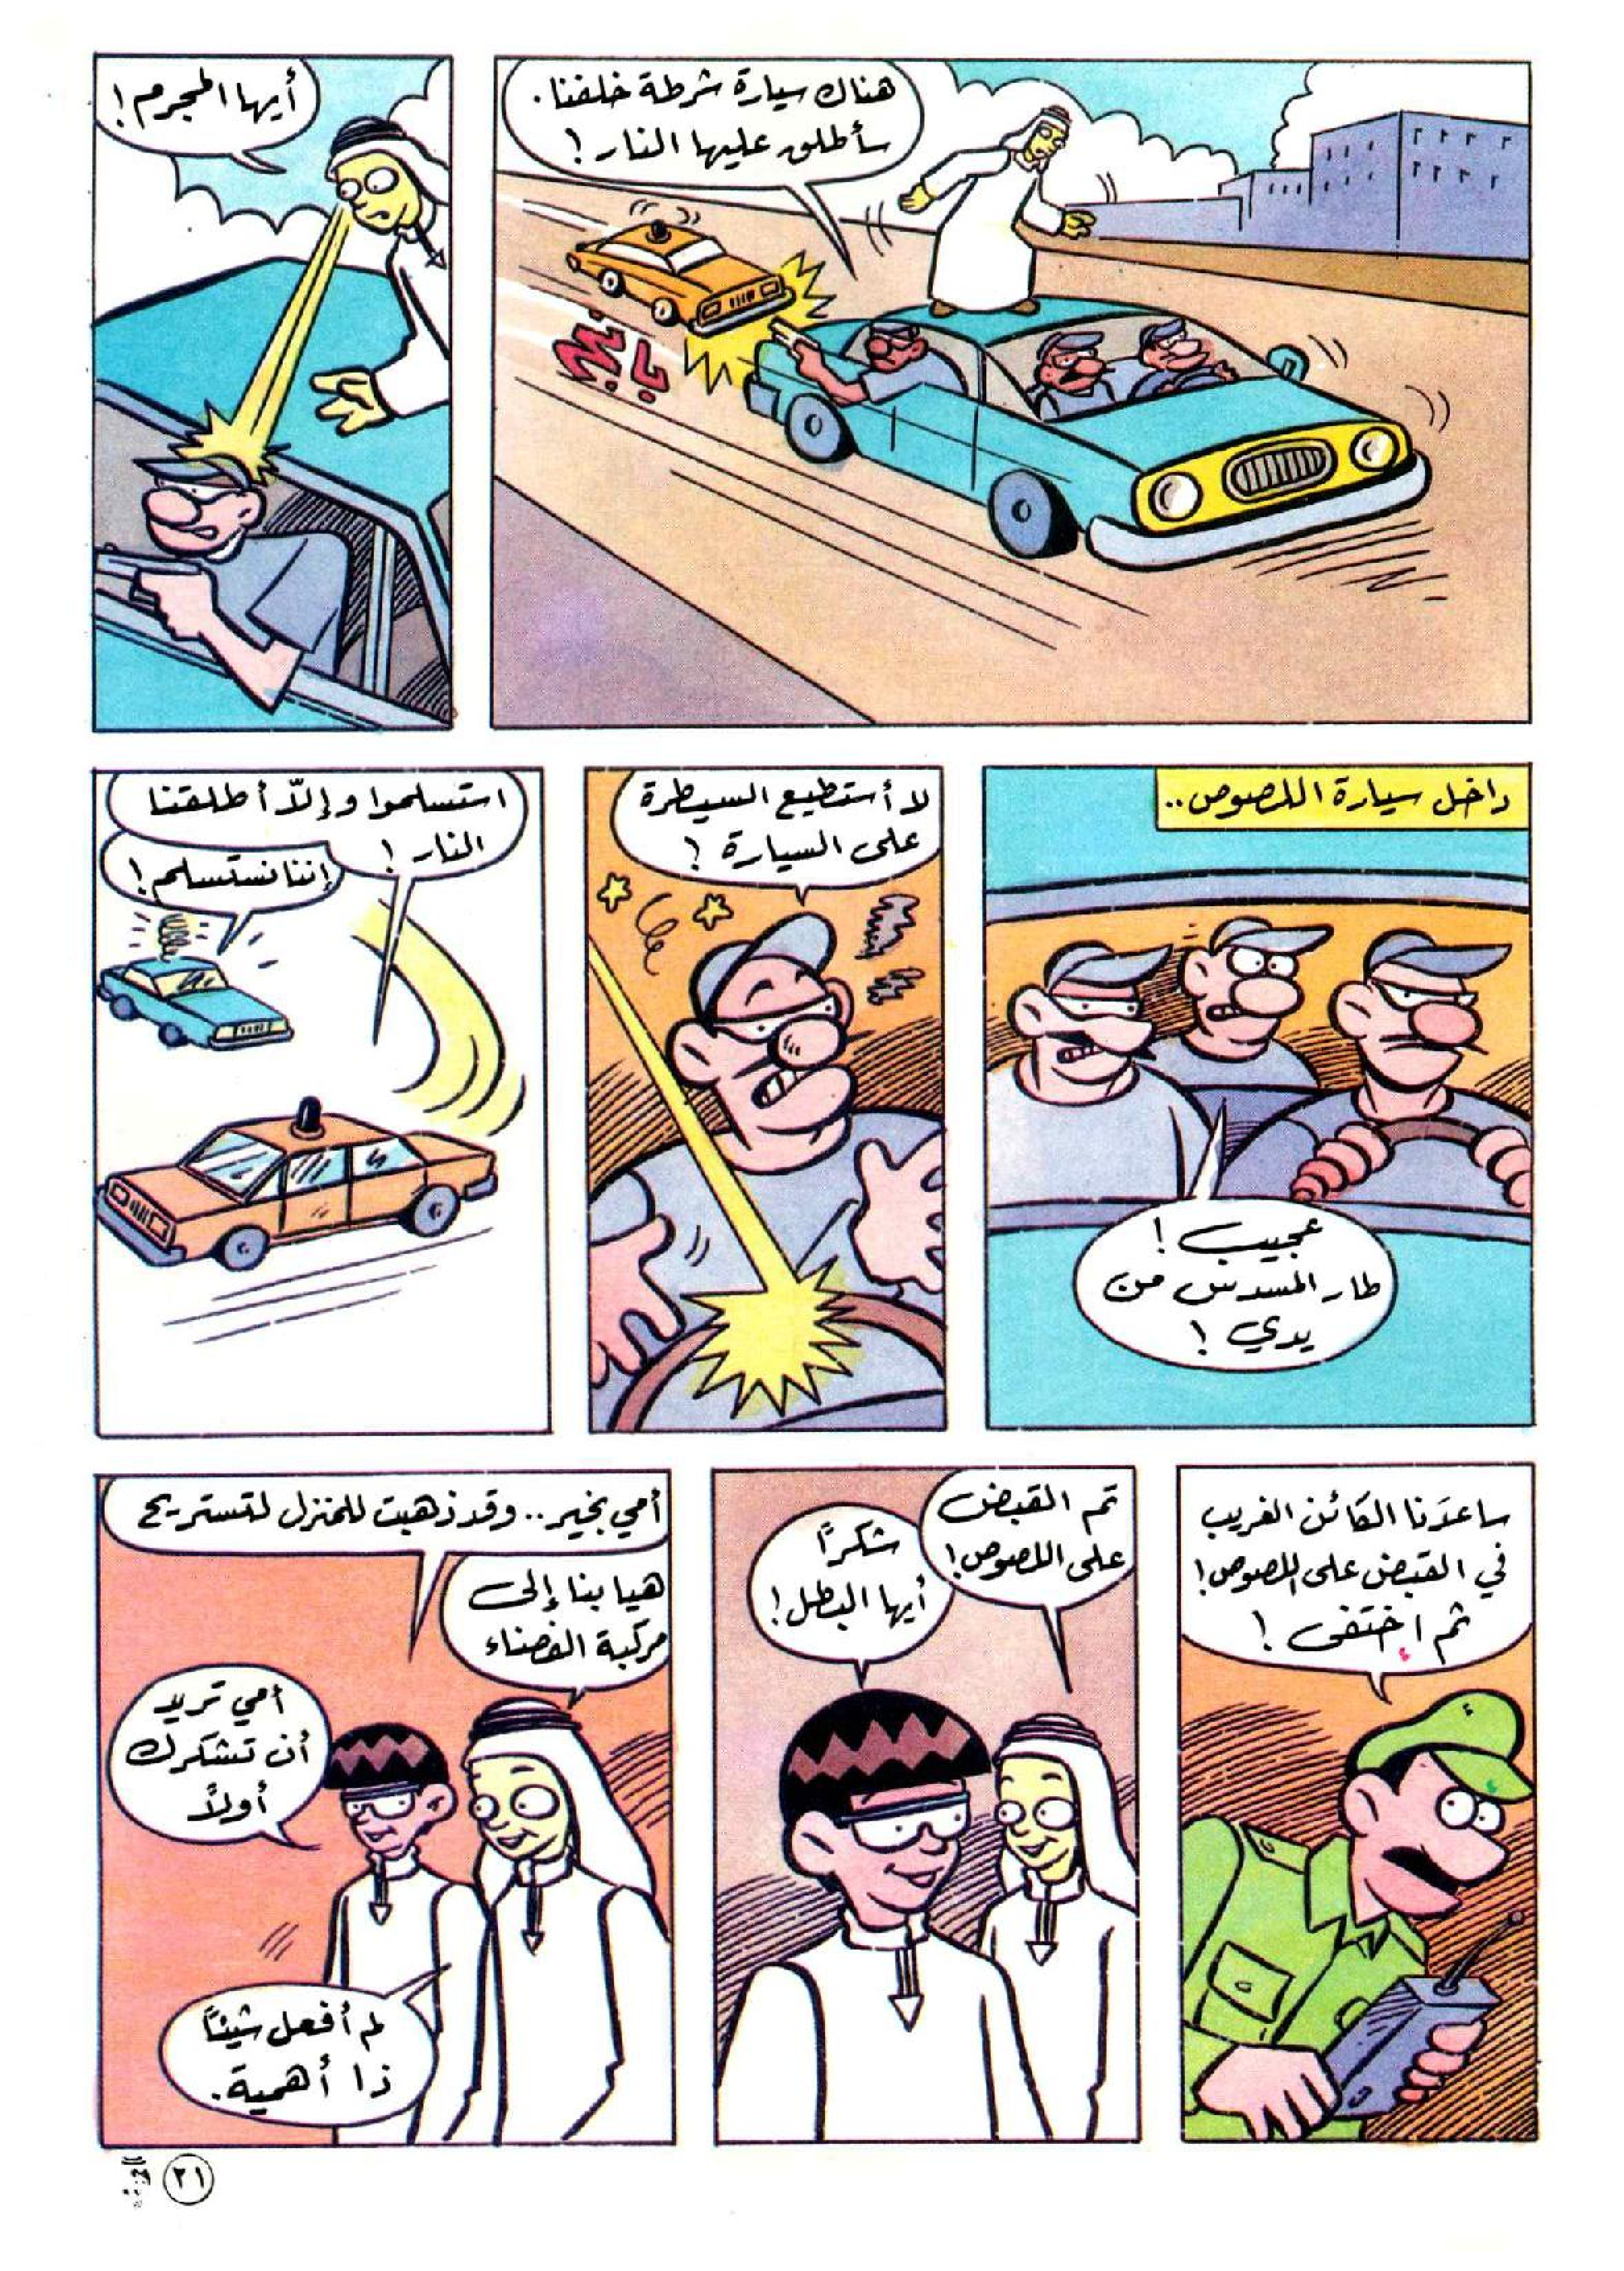 هناك سيارة شرطة خلفنا.
سأطلق عليها النار!
باغ
أيها المجرم!
داخل سيارة اللصوص..
عجيب!
طار المسدس من
يدي!
لا أستطيع السيطرة
على السيارة؟
استسلموا وإلّا أطلقنا
النار!
إننا نستسلم!
ساعدَنا الكائن الغريب
في القبض على اللصوص!
ثم إختفى!
تم القبض
على اللصوص!
شكراً
أيها البطل!
هيا بنا إلى
مركبة الفضاء
أمي بخير.. وقد ذهبت للمنزل لتستريح
أمي تريد
أن تشكرك
أولاً
لم أفعل شيئاً
ذا أهمية.
٢١